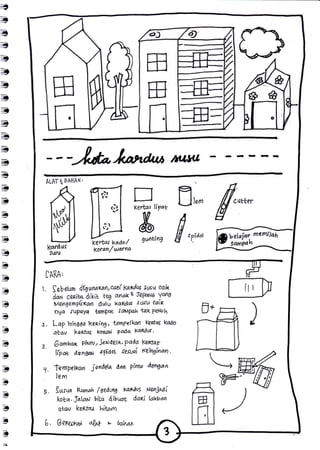 kota kardus susu
ALAT & BAHAN:
New Milk
kardus susu
kertas kado/ koran/warna
kertas lipat
gunting
lem
spidol
cutter
belajar memilah sampah
CARA:
1. Sebelum digunakan, cuci kardus susu baik
dan cerita dikit ttg anak² Jepang yang
mengumpulkan dulu kardus susu baik
nya supaya tempat sampah tak penuh.
2. Lap hingga kering, tempelkan kertas kado
atau kertas koran pada kardus.
3. Gambar pintu, jendela, pada kertas
lipat dengan spidol sesuai keinginan.
4. Tempelkan jendela dan pintu dengan
lem
5. Susun Rumah/gedung kardus menjadi
kota. Jalan bisa dibuat dari lakban
atau kertas hitam
6. Bereskan alat & bahan
3